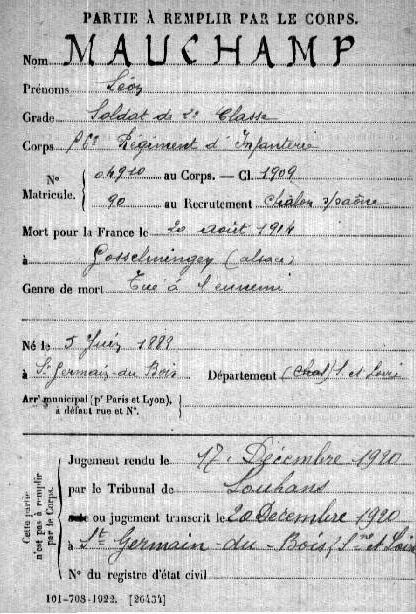 PARTIE À REMPLIR PAR LE CORPS.
Nom MAUCHAMP
Prénoms Léon
Grade Soldat de 2e Classe
Corps Régiment d'Infanterie
N° Matricule. 04910 au Corps. — Cl. 1909
90 au Recrutement Chalon s/Saône
Mort pour la France le 20 août 1914
à Gosselmingen (alsace)
Genre de mort Tué à l'ennemi
Né le 5 1889
à St Germain-du Bois Département S. et Loire
Arrt municipal (pr Paris et Lyon),
à défaut rue et N°.
Cette partie n'est pas à remplir par le Corps.
Jugement rendu le 17 Décembre 1920
par le Tribunal de Louhans
ou jugement transcrit le 20 Décembre 1920
à St Germain-du-Bois (Sne et Loire
N° du registre d'état civil
101-708-1922. [26434]